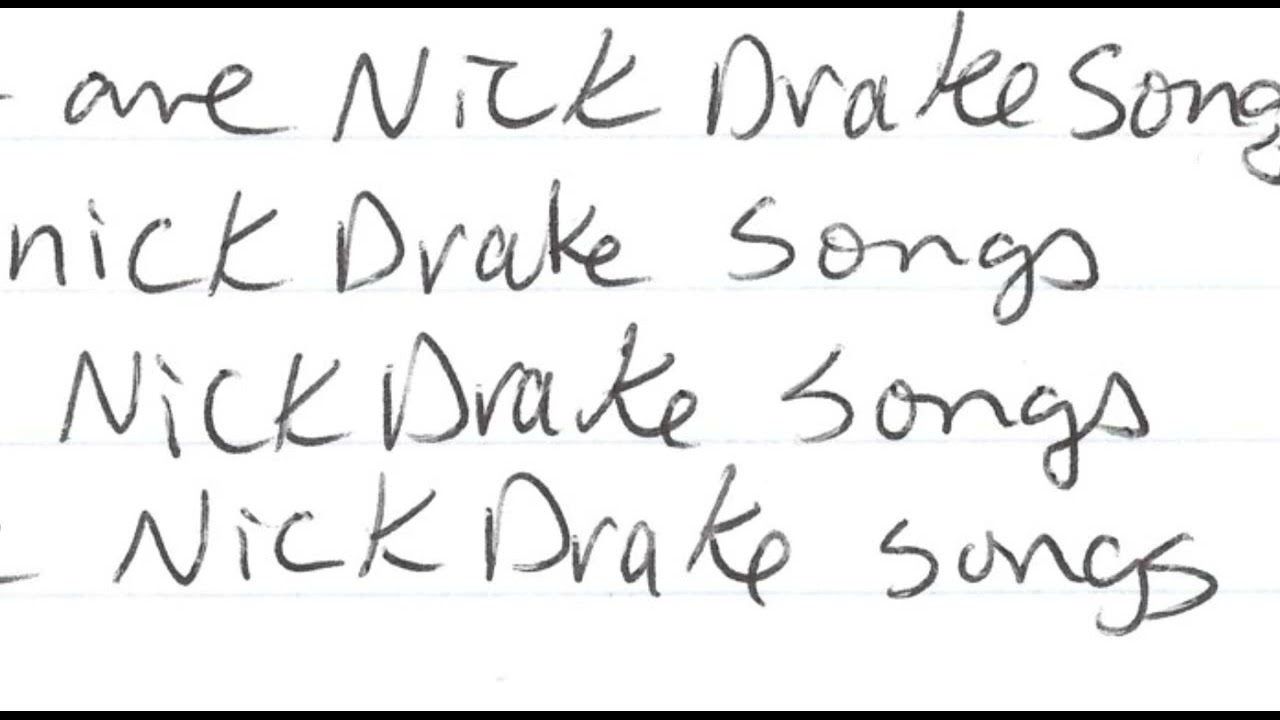 are Nick Drake Song
nick Drake songs
Nick Drake songs
Nick Drake songs